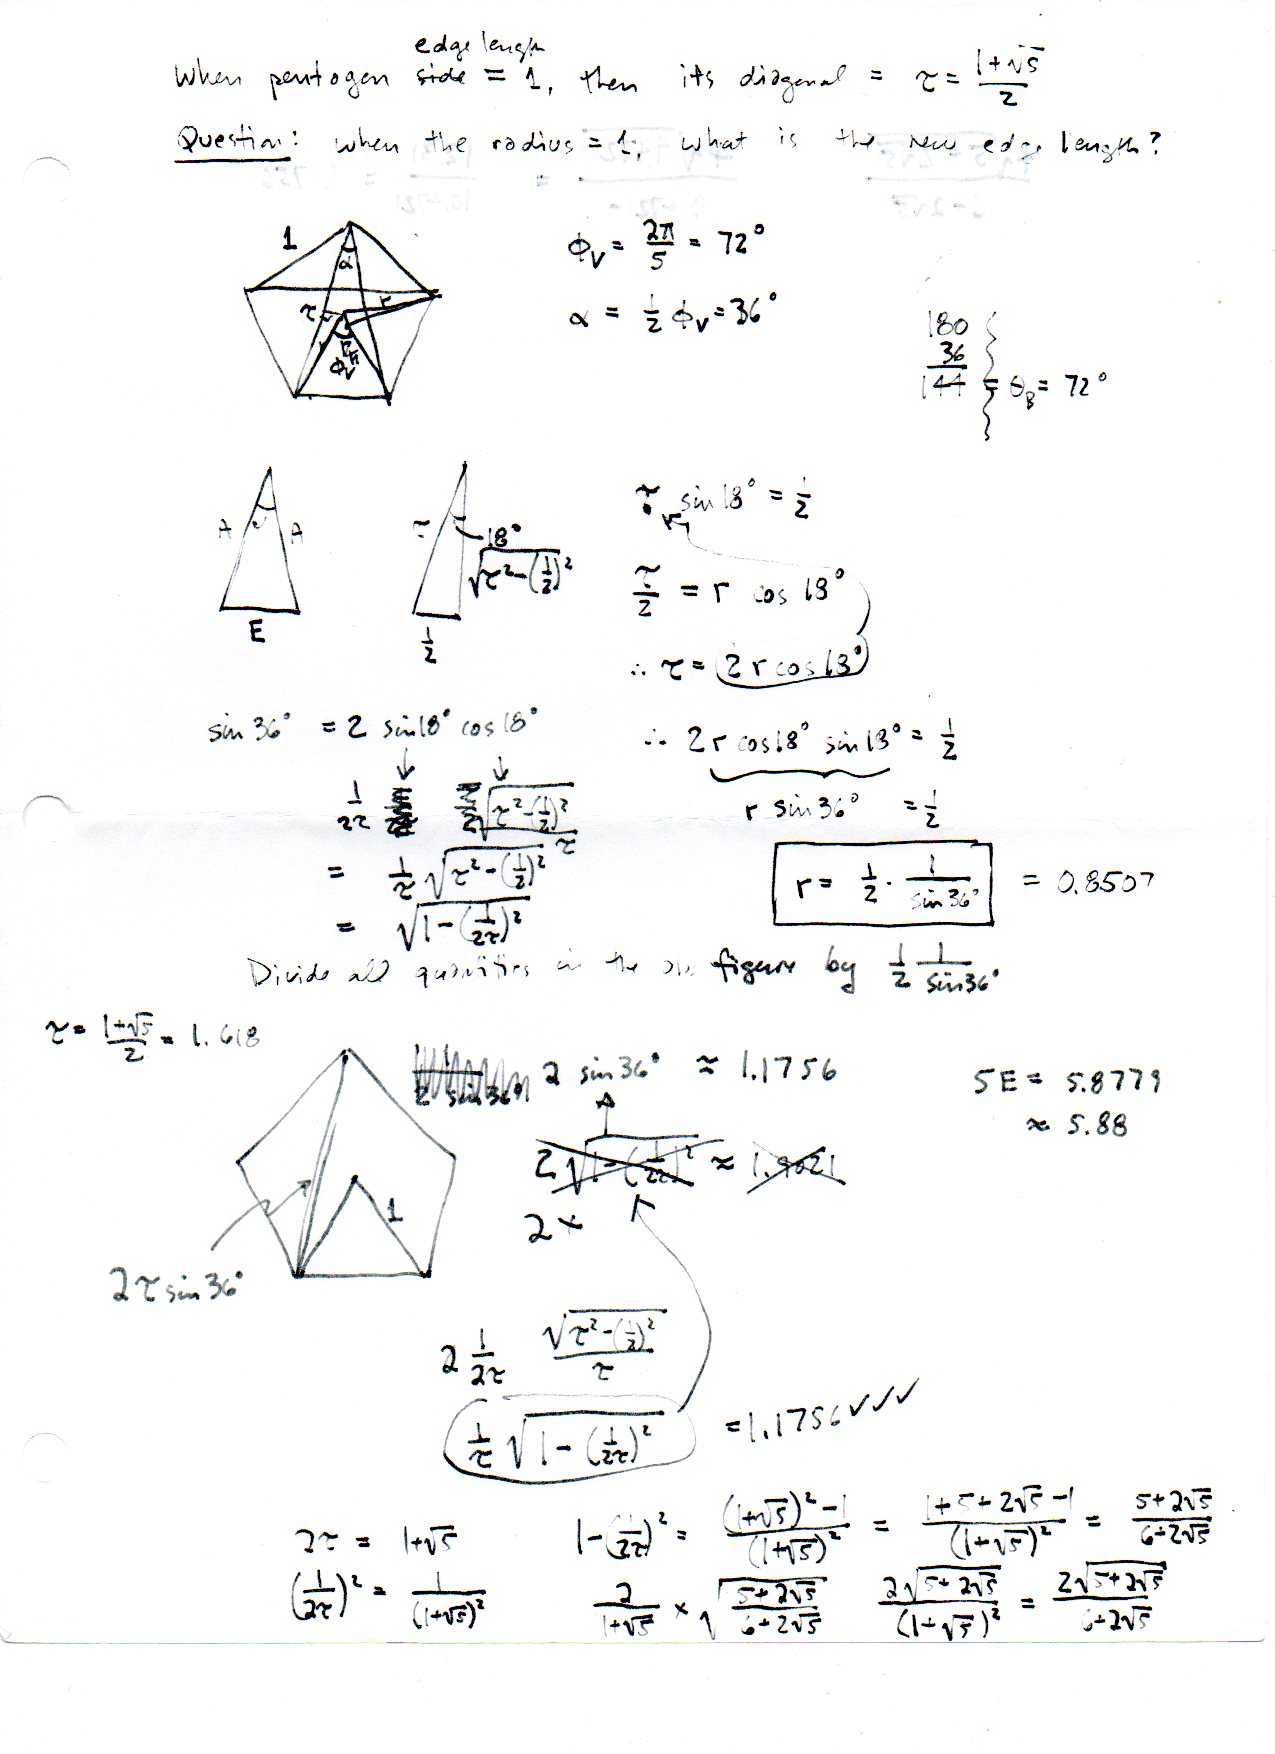 edge length
When pentogon side = 1, then its diagonal = τ = (1+√5)/2
Question: when the radius = 1, what is the new edge length?
1
α
τ
r
r
ϕv
ϕv = 2π/5 = 72°
α = 1/2 ϕv = 36°
180
36
144 = θB = 72°
A A
E
τ 18°
√(τ²-(1/2)²)
1/2
τ · sin 18° = 1/2
τ/2 = r cos 18°
∴ τ = 2 r cos 18°
sin 36° = 2 sin 18° cos 18°
1/(2τ) √(τ²-(1/2)²)/τ
= 1/τ √(τ²-(1/2)²)
= √(1-(1/(2τ))²)
∴ 2 r cos 18° sin 18° = 1/2
r sin 36° = 1/2
r = 1/2 · 1/(sin 36°) = 0.8507
Divide all quantities in the figure by 1/2 1/(sin 36°)
τ = (1+√5)/2 = 1.618
2 sin 36° ≈ 1.1756
5E = 5.8779
≈ 5.88
2√(1-(1/(2τ))²) ≈ 1.9021
2 ×
1
2τ sin 36°
2 1/(2τ) √(τ²-(1/2)²)/τ
1/τ √(1-(1/(2τ))²) = 1.1756 ✓✓✓
2τ = 1+√5
(1/(2τ))² = 1/(1+√5)²
1-(1/(2τ))² = ((1+√5)²-1)/(1+√5)² = (1+5+2√5-1)/(1+√5)² = (5+2√5)/(6+2√5)
2/(1+√5) × √((5+2√5)/(6+2√5)) 2√(5+2√5)/(1+√5)² = 2√(5+2√5)/(6+2√5)